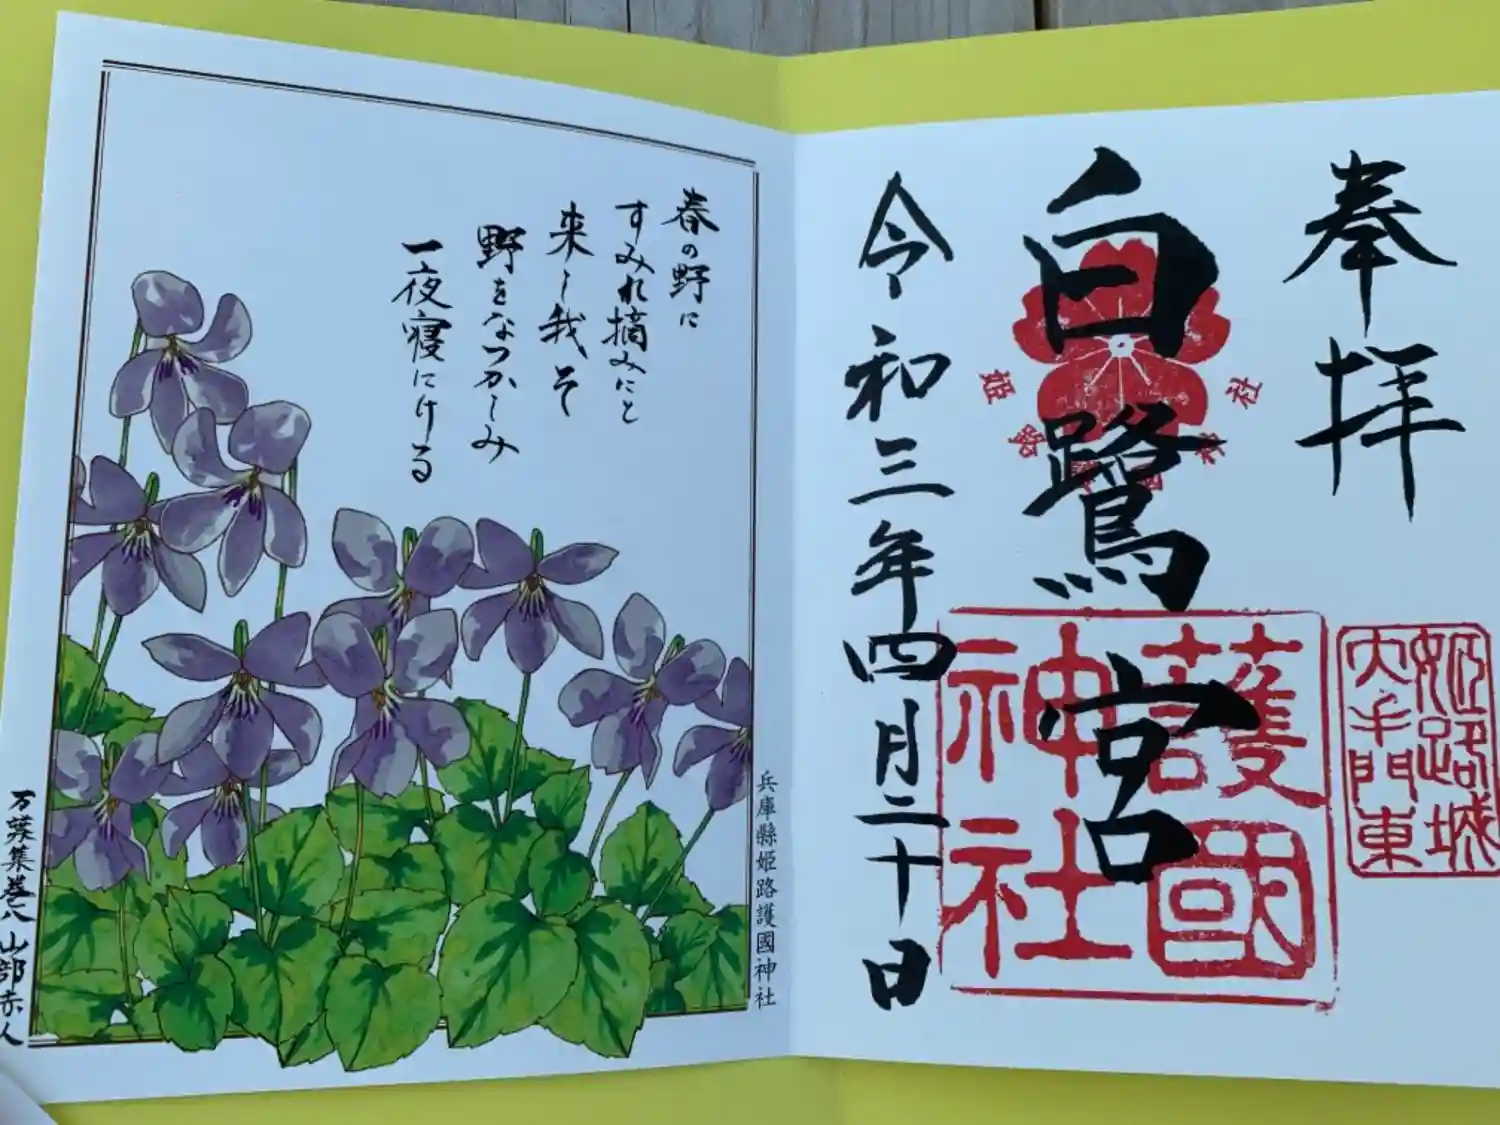 奉拝
白鷺宮
令和三年四月二十日
姫路護國神社
護國神社
姫路城大手門東
春の野に
すみれ摘みにと
来し我そ
野をなつかしみ
一夜寝にける
兵庫縣姫路護國神社
万葉集巻八 山部赤人